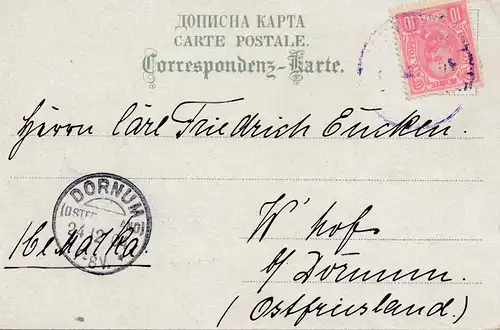 ДОПИСНА КАРТА
CARTE POSTALE.
Correspondenz-Karte.
10 10
Herrn Carl Friedrich Eucken.
DORNUM
(OSTFRIESLAND)
24 12
8V.
Немачка.
W'hof
b/ Dornum.
(Ostfriesland.)